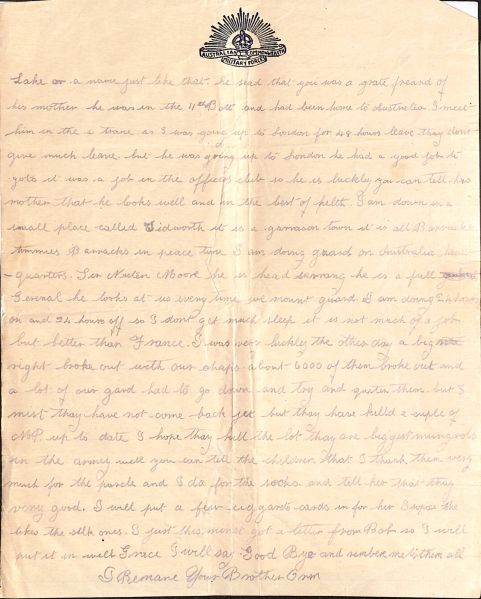 AUSTRALIAN COMMONWEALTH
MILITARY FORCES
Lake or a name just like that. he sead that you was a grate freand of
his mother he was in the 11th Batt and had been home to Australia I meet
him in the trane as I was going up to London for 48 hours leave they dont
give much leave. but he was going up to London he had a good job to
goto it was a job in the officers club so he is luckley you can tell his
mother that he looks well and in the best of helth. I am down in a
small place called Tidworth it is a garrason town it is all Barracks
tommies Barracks in peace time I am doing guard on Australia head
-quarters. Sir Moore he is head he is a full
General he looks at us every time we mount guard. I am doing 24 hours
on and 24 hours off so I dont get much sleep it is not much of a job
but better than France. I was very luckley the other day a big
right broke out with our chaps about 6000 of them broke out and
a lot of our gard had to go down and try and quiten them but I
must thay have not come back yet but thay have killd a cuple of
M.P. up to date I hope thay kill the lot thay are biggest mungrods
in the army well you can tell the children that I thank them very
much for the parcle and I do for the socks. and tell her that thay
very good. I will put a few ciggarets cards in for her I supose she
likes the silk ones. I just this minet got a letter from Bob so I will
put it in well Grace I will say Good Bye and rember me to them all
I Remane Your Brother Ern